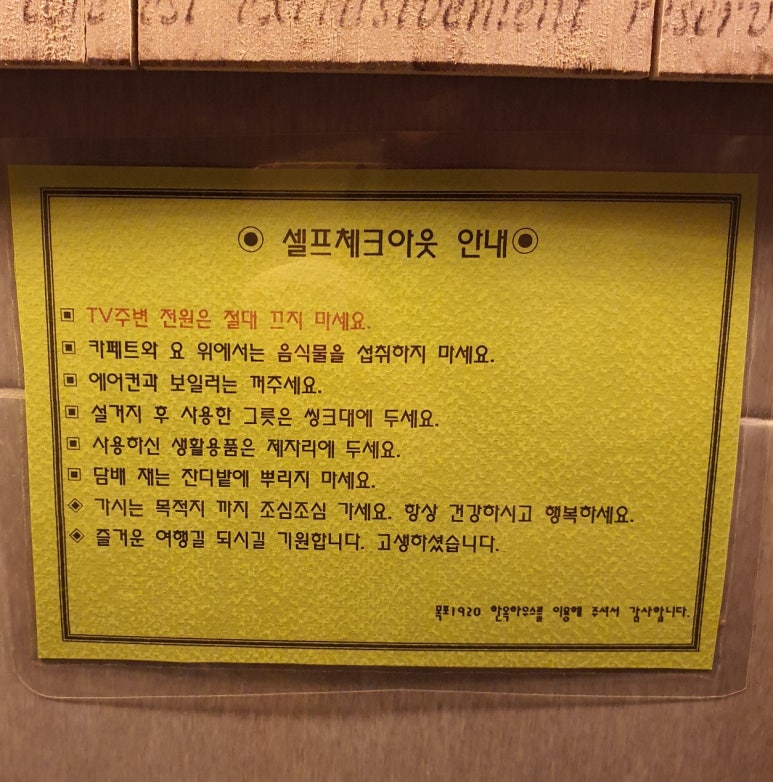 est exclusivement réserv
◉ 셀프체크아웃 안내◉
▣ TV주변 전원은 절대 끄지 마세요.
▣ 카페트와 요 위에서는 음식물을 섭취하지 마세요.
▣ 에어컨과 보일러는 꺼주세요.
▣ 설거지 후 사용한 그릇은 씽크대에 두세요.
▣ 사용하신 생활용품은 제자리에 두세요.
▣ 담배 재는 잔디밭에 뿌리지 마세요.
◈ 가시는 목적지 까지 조심조심 가세요. 항상 건강하시고 행복하세요.
◈ 즐거운 여행길 되시길 기원합니다. 고생하셨습니다.
목포1920 한옥하우스를 이용해 주셔서 감사합니다.